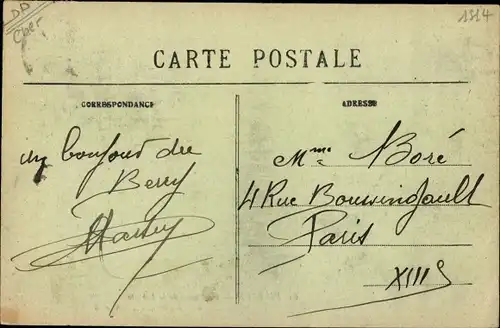 DD
Cher
1314
CARTE POSTALE
CORRESPONDANCE
ADRESSE
un bonjour du
Berry
Mme Boré
4 Rue Boussingault
Paris
XIIIe